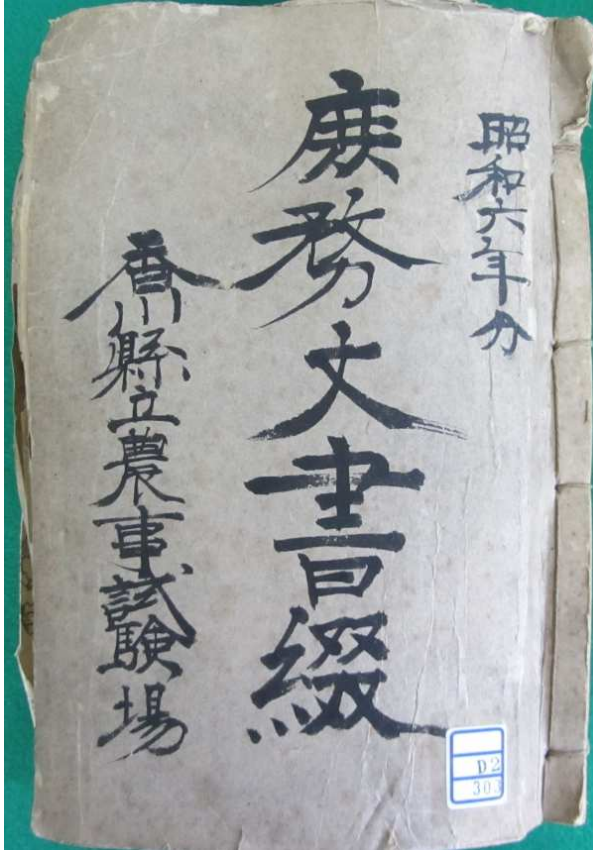 昭和六年分
庶務文書綴
香川縣立農事試験場
D2
303